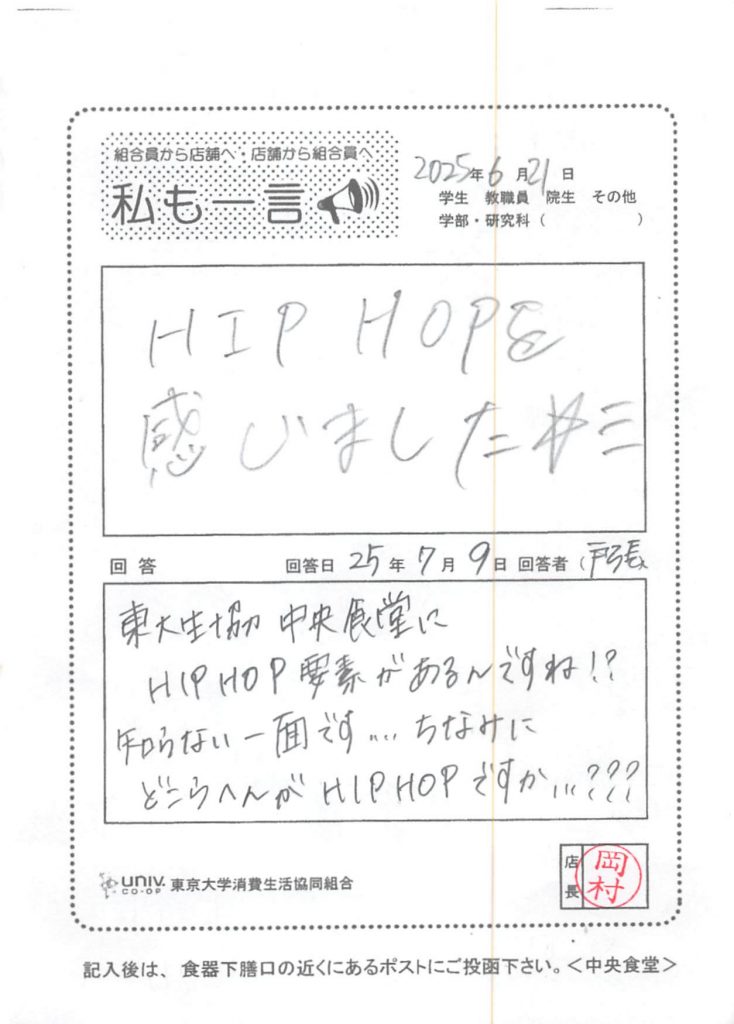 組合員から店舗へ・店舗から組合員へ
私も一言
2025年6月21日
学生 教職員 院生 その他
学部・研究科( )
HIP HOPを
感じました
回答 回答日 25年7月9日 回答者(戸張
東大生協 中央食堂に
HIP HOP要素があるんですね!?
知らない一面です... ちなみに
どこらへんがHIP HOPですか...???
UNIV. CO-OP 東京大学消費生活協同組合
店長 岡村
記入後は、食器下膳口の近くにあるポストにご投函下さい。<中央食堂>